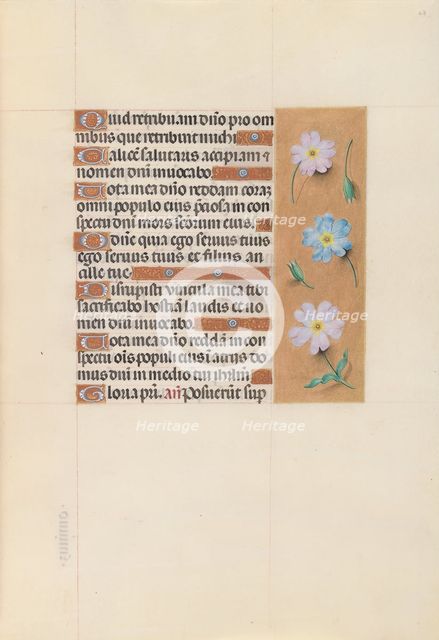 Quid retribuam dño pro om
nibus que retribuit michi
Calicē salutaris accipiam ⁊
nomen dñi inuocabo.
Uota mea dño reddam coraz
omni populo eius p̄ciosa in con
spectu dñi mors sctorum eius.
O dñe quia ego seruus tuus
ego seruus tuus et filius an
cille tue.
Disrupisti vincula mea tibi
sacrificabo hostiā laudis et no
men dñi inuocabo.
Uota mea dño reddā in con
spectu ois populi eius ī atriis do
mus dñi in medio tui ihrlm̄
Gloria pr̄i. añ Posuerūt sup
Heritage Heritage
Heritage Heritage
Heritage Heritage